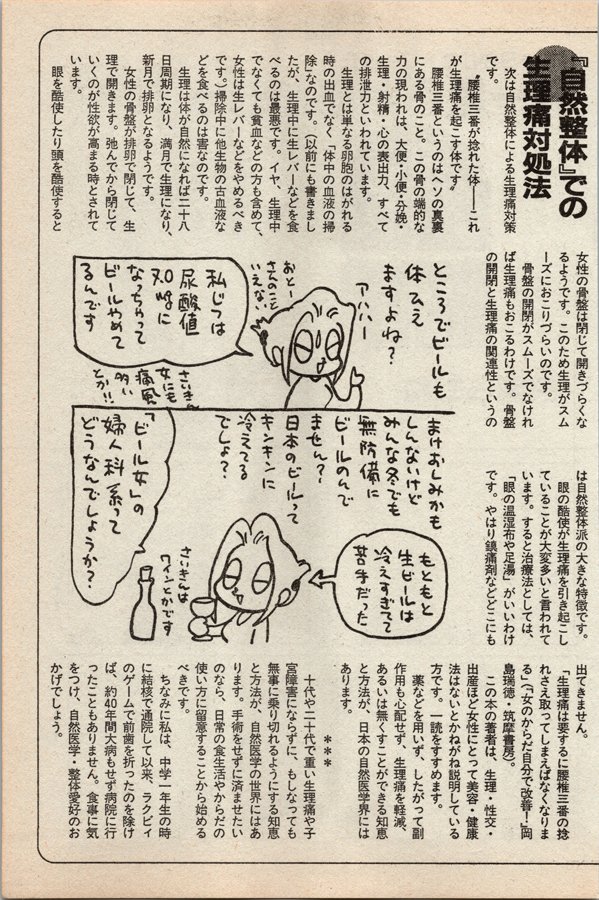 『自然整体』での
生理痛対処法
次は自然整体による生理痛対策
です。
〝腰椎三番が捻れた体――これ
が生理痛を起こす体です。
腰椎三番というのはヘソの真裏
にある骨のこと。この骨の端的な
力の現われは、大便・小便・分娩・
生理・射精・心の表出力、すべて
の排泄力といわれています。
生理とは単なる卵胞のはがれる
時の出血でなく「体中の血液の掃
除」なのです。（以前にも書きまし
たが、生理中に生レバーなどを食
べるのは最悪です。イヤ、生理中
でなくても貧血などの方も含めて、
女性は生レバーなどをやめるべき
です。）掃除中に他生物の古血液な
どを食べるのは害なのです。
生理は体が自然になれば二十八
日周期になり、満月で生理になり、
新月で排卵となるようです。
女性の骨盤が排卵で閉じて、生
理で開きます。弛んでから閉じて
いくのが性欲が高まる時とされて
います。
眼を酷使したり頭を酷使すると
女性の骨盤は閉じて開きづらくな
るようです。このため生理がスム
ーズにおこりづらいのです。
骨盤の開閉がスムーズでなけれ
ば生理痛もおこるわけです。骨盤
の開閉と生理痛の関連性というの
は自然整体派の大きな特徴です。
眼の酷使が生理痛を引き起こし
ていることが大変多いと言われて
います。すると治療法としては、
「眼の温湿布や足湯」がいいわけ
です。やはり鎮痛剤などどこにも
出てきません。
「生理痛は要するに腰椎三番の捻
れさえ取ってしまえばなくなりま
る」（『女のからだ自分で改善！』岡
島瑞徳・筑摩書房）。
この本の著者は、生理・性交・
出産ほど女性にとって美容・健康
法はないとかねがね説明している
方です。一読をすすめます。
薬などを用いず、したがって副
作用も心配せず、生理痛を軽減、
あるいは無くすことができる知恵
と方法が、日本の自然医学界には
あります。
＊＊＊
十代や二十代で重い生理痛や子
宮障害にならずに、もしなっても
無事に乗り切れるようにする知恵
と方法が、自然医学の世界にはあ
ります。手術をせずに済ませたい
のなら、日常の食生活やからだの
使い方に留意することから始める
べきです。
ちなみに私は、中学一年生の時
に結核で通院して以来、ラクビィ
のゲームで前歯を折ったのを除け
ば、約40年間大病もせず病院に行
ったこともありません。食事に気
をつけ、自然医学・整体愛好のお
かげでしょう。
ところでビールも
体ひえ
ますよね？
アハハー
おとー
さんのこと
いえない
私じつは
尿酸値
高めに
なっちゃって
ビールやめて
るんです
さいきん
女にも
痛風
多い
とか!!
まけおしみかも
しんないけど
みんな冬でも
無防備に
ビールのんで
ません？
日本のビールって
キンキンに
冷えてる
でしょ？
もともと
生ビールは
冷えすぎてて
苦手だった
さいきんは
ワインとかです
「ビール女」の
婦人科系って
どうなんでしょうか？